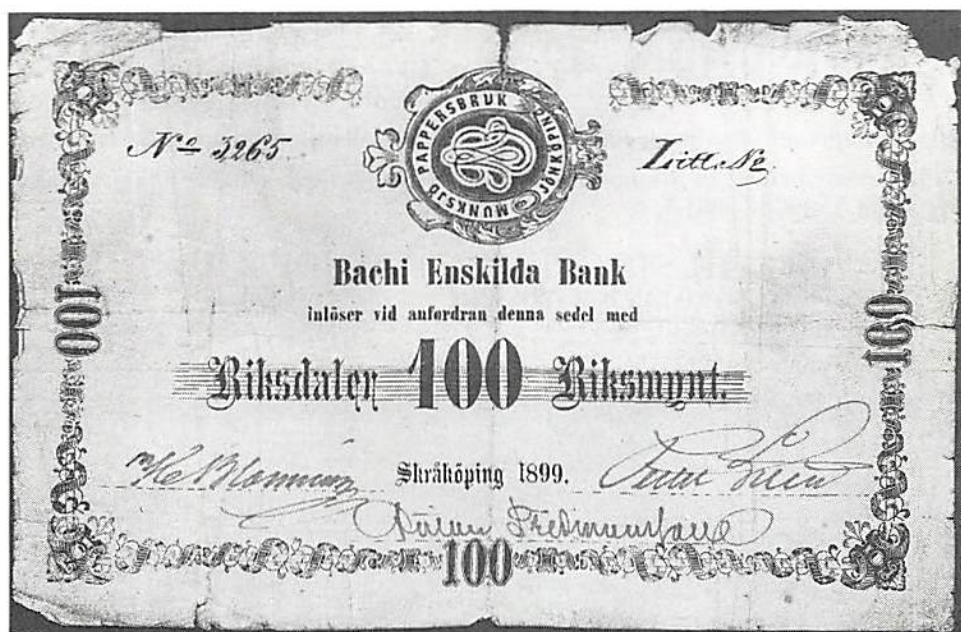 MUNKSJÖ PAPPERSBRUK JÖNKÖPING
No 3265.
Litt. No
Bachi Enskilda Bank
inlöser vid anfordran denna sedel med
Riksdaler 100 Riksmynt.
100
100
Skråköping 1899.
100